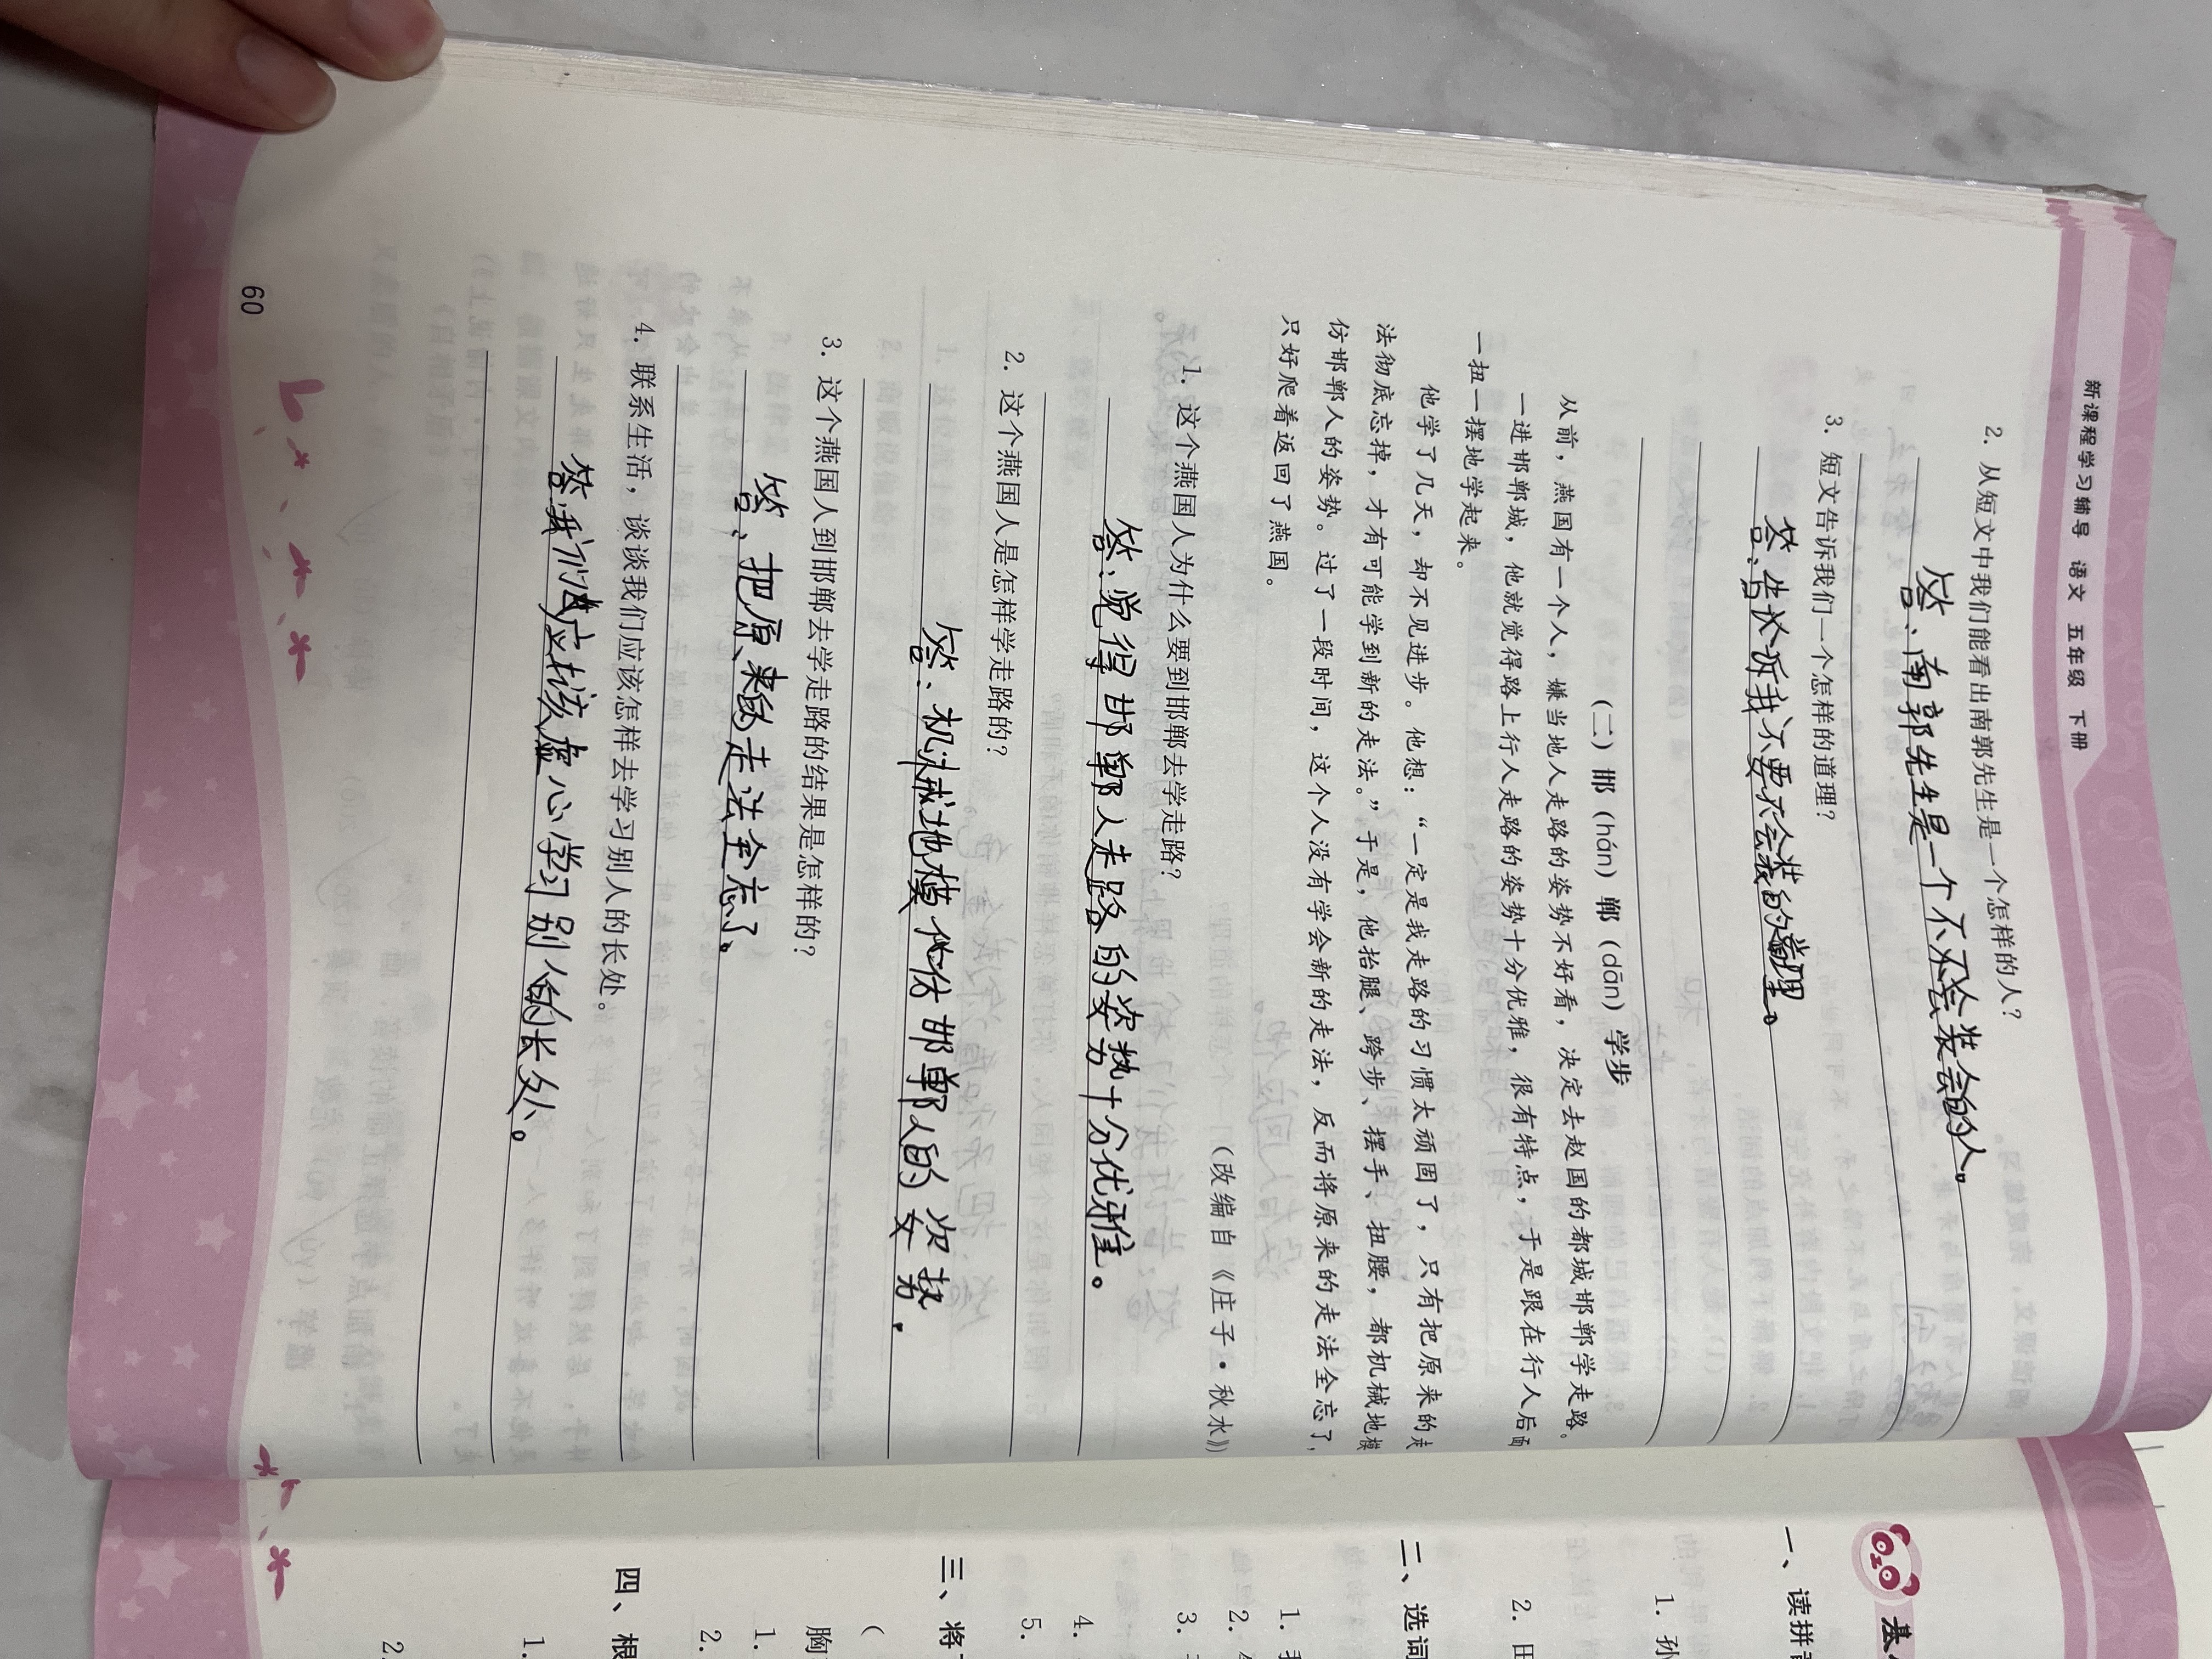 新课程学习辅导 语文 五年级 下册
2. 从短文中我们能看出南郭先生是一个怎样的人?
答:南郭先生是一个不不会装会的人。
3. 短文告诉我们一个怎样的道理?
答:告诉我不要不会装的道理。
(二) 邯 (hán) 郸 (dān) 学步
从前,燕国有一个人,嫌当地人走路的姿势不好看,决定去赵国的都城邯郸学走路。
一进邯郸城,他就觉得路上行人走路的姿势十分优雅,很有特点,于是跟在行人后面
一扭一摆地学起来。
他学了几天,却不见进步。他想:“一定是我走路的习惯太顽固了,只有把原来的走
法彻底忘掉,才有可能学到新的走法。”于是,他抬腿、跨步、摆手、扭腰,都机械地模
仿邯郸人的姿势。过了一段时间,这个人没有学会新的走法,反而将原来的走法全忘了,
只好爬着返回了燕国。
(改编自《庄子·秋水》)
1. 这个燕国人为什么要到邯郸去学走路?
答:觉得邯郸人走路的姿势十分优雅。
2. 这个燕国人是怎样学走路的?
答:机械地模仿邯郸人的姿势。
3. 这个燕国人到邯郸去学走路的结果是怎样的?
答:把原来的走法全忘了。
4. 联系生活,谈谈我们应该怎样去学习别人的长处。
答:我们应该虚心学习别人的长处。
60
基
一、读拼音
1. 孙
2. 田
二、选词
1. 我
2.
3.
4.
5.
三、将
(
胸
1.
2.
四、根
1.
2.